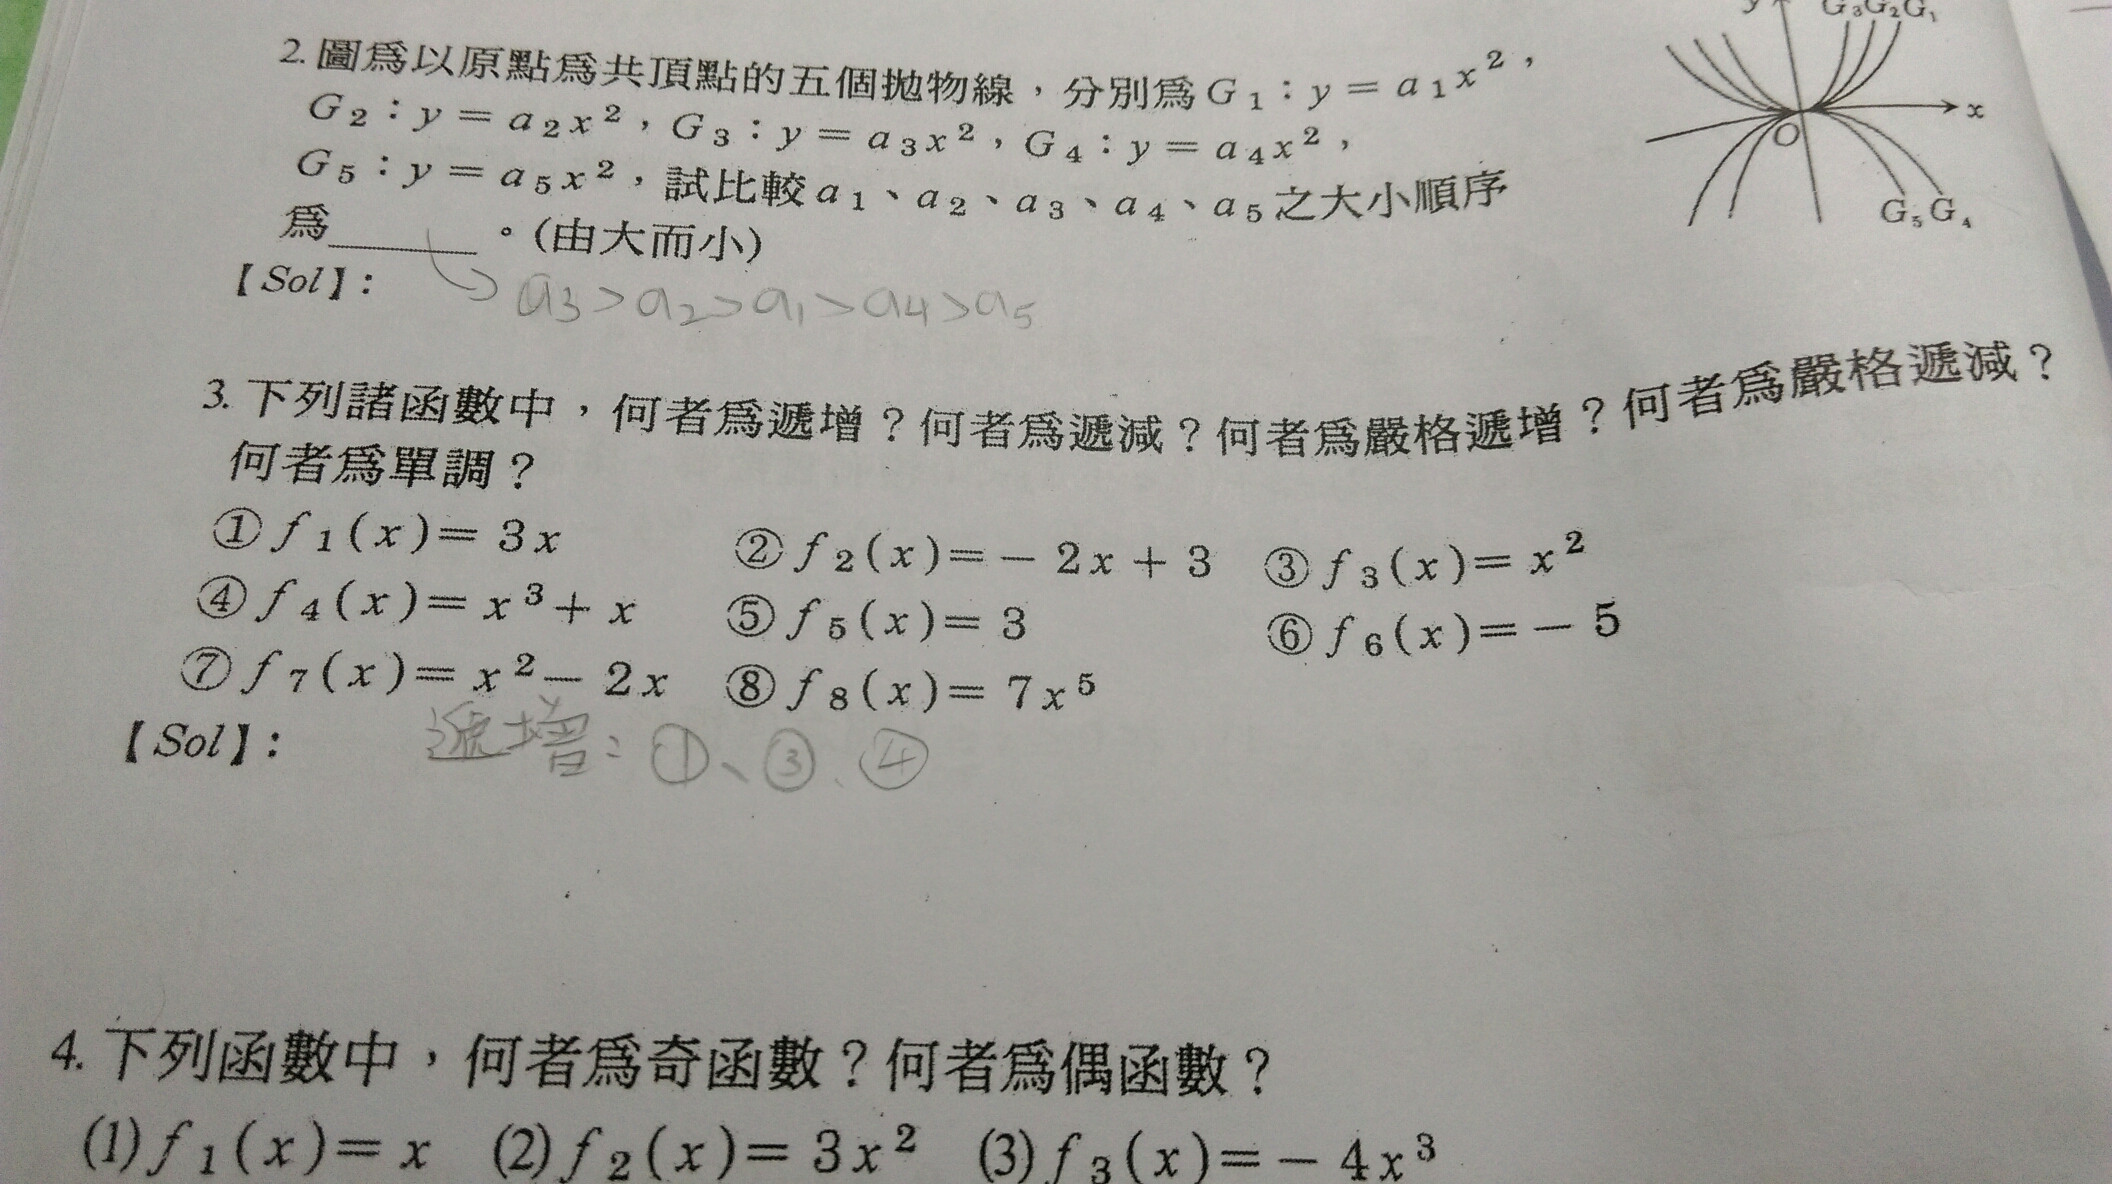 2. 圖爲以原點爲共頂點的五個拋物線，分別爲G₁：y＝a₁x²，
G₂：y＝a₂x²，G₃：y＝a₃x²，G₄：y＝a₄x²，
G₅：y＝a₅x²，試比較a₁、a₂、a₃、a₄、a₅之大小順序
爲______。(由大而小)
【Sol】：
a₃＞a₂＞a₁＞a₄＞a₅
y G₃G₂G₁
x
O
G₅G₄
3. 下列諸函數中，何者爲遞增？何者爲遞減？何者爲嚴格遞增？何者爲嚴格遞減？
何者爲單調？
①f₁(x)＝3x ②f₂(x)＝－2x＋3 ③f₃(x)＝x²
④f₄(x)＝x³＋x ⑤f₅(x)＝3 ⑥f₆(x)＝－5
⑦f₇(x)＝x²－2x ⑧f₈(x)＝7x⁵
【Sol】： 遞增：①、③、④
4. 下列函數中，何者爲奇函數？何者爲偶函數？
(1)f₁(x)＝x (2)f₂(x)＝3x² (3)f₃(x)＝－4x³